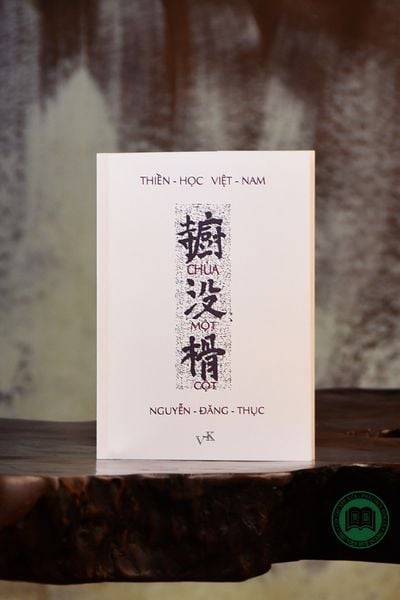 THIỀN - HỌC VIỆT - NAM
CHÙA
没
MỘT
榾
CỘT
NGUYỄN - ĐĂNG - THỤC
VK